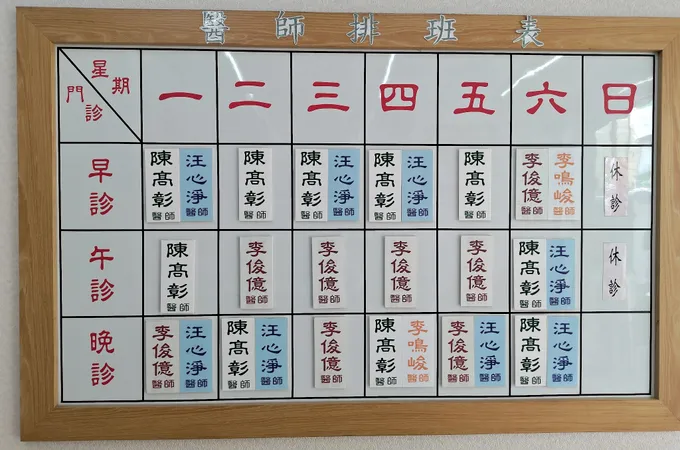 醫師排班表
星期 門診 一 二 三 四 五 六 日
早診 陳高彰醫師 汪心淨醫師 陳高彰醫師 陳高彰醫師 汪心淨醫師 陳高彰醫師 汪心淨醫師 陳高彰醫師 李俊億醫師 李鳴峻醫師 休診
午診 陳高彰醫師 李俊億醫師 李俊億醫師 李俊億醫師 李俊億醫師 陳高彰醫師 汪心淨醫師 休診
晚診 李俊億醫師 汪心淨醫師 陳高彰醫師 汪心淨醫師 李俊億醫師 陳高彰醫師 李鳴峻醫師 李俊億醫師 汪心淨醫師 陳高彰醫師 汪心淨醫師